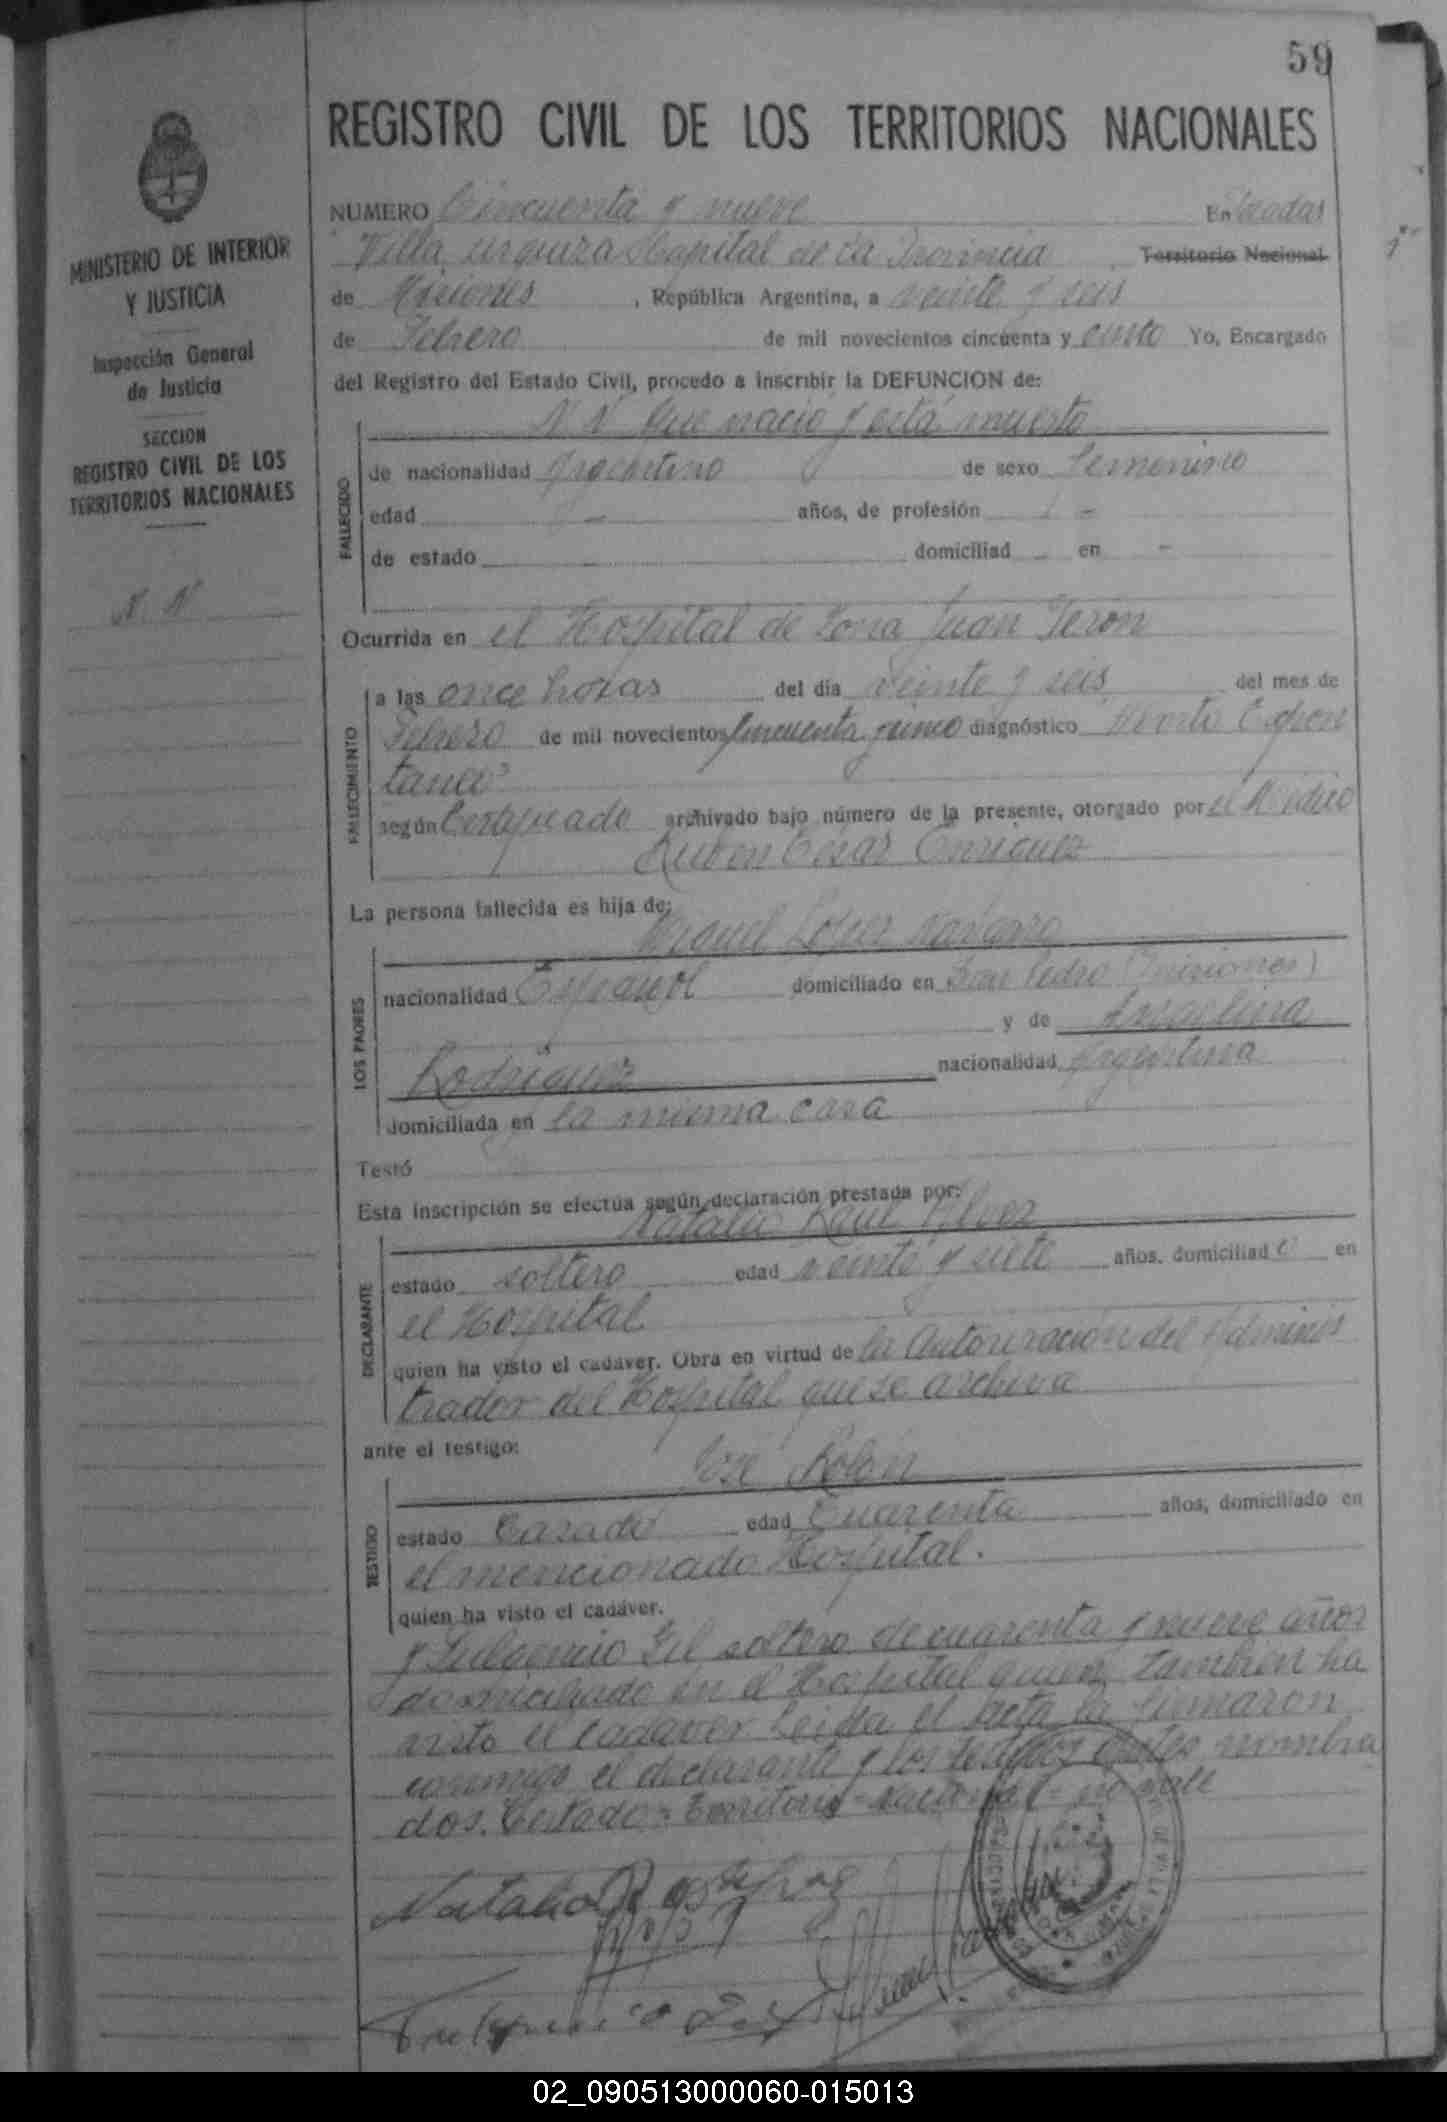 59
REGISTRO CIVIL DE LOS TERRITORIOS NACIONALES
MINISTERIO DE INTERIOR
Y JUSTICIA
Inspección General
de Justicia
SECCION
REGISTRO CIVIL DE LOS
TERRITORIOS NACIONALES
N. N
NUMERO Cincuenta y nueve En
Villa Urquiza Capital de la Provincia Territorio Nacional
de Misiones, República Argentina, a veinte y seis
de Febrero de mil novecientos cincuenta y cinco Yo, Encargado
del Registro del Estado Civil, procedo a inscribir la DEFUNCION de:
N N que nació y está muerto
FALLECIDO
de nacionalidad Argentino de sexo femenino
edad - años, de profesión -
de estado - domiciliad - en -
Ocurrida en el Hospital de Zona Juan Perón
FALLECIMIENTO
a las once horas del día veinte y seis del mes de
Febrero de mil novecientos cincuenta y cinco diagnóstico Espon
taneo
según Certificado archivado bajo número de la presente, otorgado por el Médico
Ruben Cesar Enriquez
La persona fallecida es hija de:
Miguel Lopez Navarro
LOS PADRES
nacionalidad Español domiciliado en San Pedro (Misiones)
y de Angelina
Rodriguez nacionalidad Argentina
domiciliada en la misma casa
Testó
Esta inscripción se efectúa según declaración prestada por:
Natalio Raul
DECLARANTE
estado soltero edad veinte y siete años, domiciliado en
el Hospital
quien ha visto el cadáver. Obra en virtud de la Autorización del Adminis
trador del Hospital que se archiva
ante el testigo:
José Rolón
TESTIGO
estado Casado edad Cuarenta años, domiciliado en
el mencionado Hospital.
quien ha visto el cadáver.
y Fulgencio Gil soltero de cuarenta y nueve años
domiciliado en el Hospital quien también ha
visto el cadaver Leida el acta la firmaron
conmigo el declarante y los testigos antes nombra
dos. Testado = Territorio = Nacional = no vale
Natalio R
02_090513000060-015013